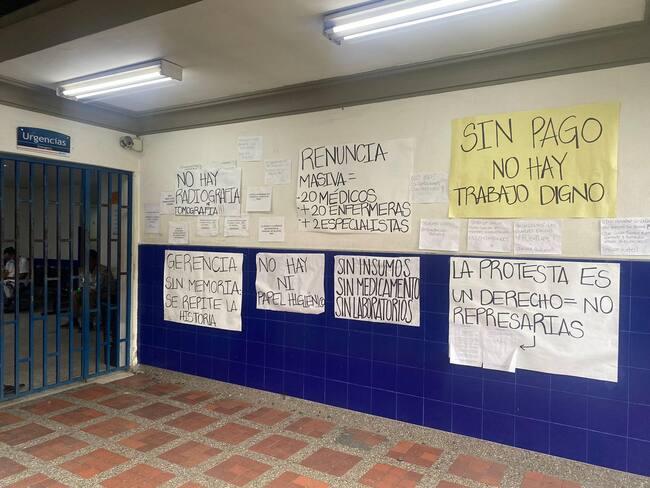 Urgencias
NO HAY
RADIOGRAFIA
TOMOGRAFIA
RENUNCIA
MASIVA =
-20 MEDICOS
+20 ENFERMERAS
+2 ESPECIALISTAS
SIN PAGO
NO HAY
TRABAJO DIGNO
GERENCIA
SIN MEMORIA:
SE REPITE LA
HISTORIA
NO HAY
NI
PAPEL HIGIENICO
SIN INSUMOS
SIN MEDICAMENTO
SIN LABORATORIOS
LA PROTESTA ES
UN DERECHO = NO
REPRESARIAS